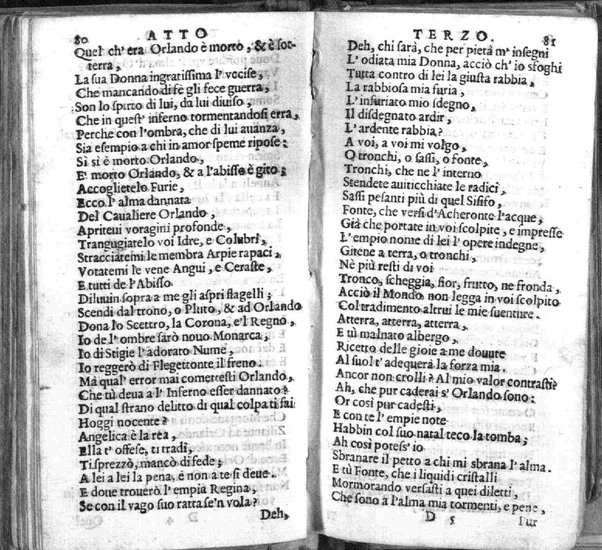 80 ATTO
Quel ch' era Orlando è morto, & è sot-
terra,
La sua Donna ingratissima l' vccise,
Che mancando di fe gli fece guerra,
Son lo spirto di lui, da lui diuiso,
Che in quest' inferno tormentandosi erra,
Perche con l'ombra, che di lui auanza,
Sia esempio a chi in amor speme ripose:
Sì sì è morto Orlando,
E' morto Orlando, & a l'abisso è gito;
Accoglietelo Furie,
Ecco l' alma dannata
Del Caualiere Orlando,
Apriteui voragini profonde,
Trangugiatelo voi Idre, e Colubri,
Stracciatemi le membra Arpie rapaci,
Votatemi le vene Angui, e Ceraste,
E tutti de l'Abisso
Diluuin sopra a me gli aspri flagelli;
Scendi dal trono, o Pluto, & ad Orlando
Dona lo Scettro, la Corona, e'l Regno,
Io de l' ombre sarò nouo Monarca;
Io di Stigie l'adorato Nume,
Io reggerò di Flegettonte il freno.
Mà qual' error mai commettesti Orlando,
Che tù deua a l' Inferno esser dannato?
Di qual strano delitto di qual colpa ti fai
Hoggi nocente?
Angelica è la rea,
Ella t' offese, ti tradì,
Ti sprezzò, mancò di fede;
A lei a lei la pena, e non a te si deue.
E doue trouerò l' empia Regina,
Se con il vago suo ratta se'n vola?
Deh,
TERZO. 81
Deh, chi sarà, che per pietà m' insegni
L' odiata mia Donna, acciò ch' io sfoghi
Tutta contro di lei la giusta rabbia,
La rabbiosa mia furia,
L' infuriato mio sdegno,
Il disdegnato ardir,
L' ardente rabbia?
A voi, a voi mi volgo,
O tronchi, o sassi, o fonte,
Tronchi, che ne l' interno
Stendete auiticchiate le radici,
Sassi pesanti più di quel Sisifo,
Fonte, che versi d'Acheronte l'acque,
Già che portate in voi scolpite, e impresse
L' empio nome di lei l' opere indegne,
Gitene a terra, o tronchi,
Nè più resti di voi
Tronco, scheggia, fior, frutto, ne fronda,
Acciò il Mondo non legga in voi scolpito
Col tradimento altrui le mie suenture.
Atterra, atterra, atterra,
E tù malnato albergo,
Ricetto delle gioie a me douute
Al suol t' adequerà la forza mia.
Ancor non crolli? Al mio valor contrasti?
Ah, che pur caderai s' Orlando sono:
Or così pur cadesti,
E con te l' empie note
Habbin col suo natal teco la tomba;
Ah così potess' io
Sbranare il petto a chi mi sbrana l' alma.
E tù Fonte, che i liquidi cristalli
Mormorando versasti a quei diletti,
Che sono a l'alma mia tormenti, e pene,
D 5 Tur